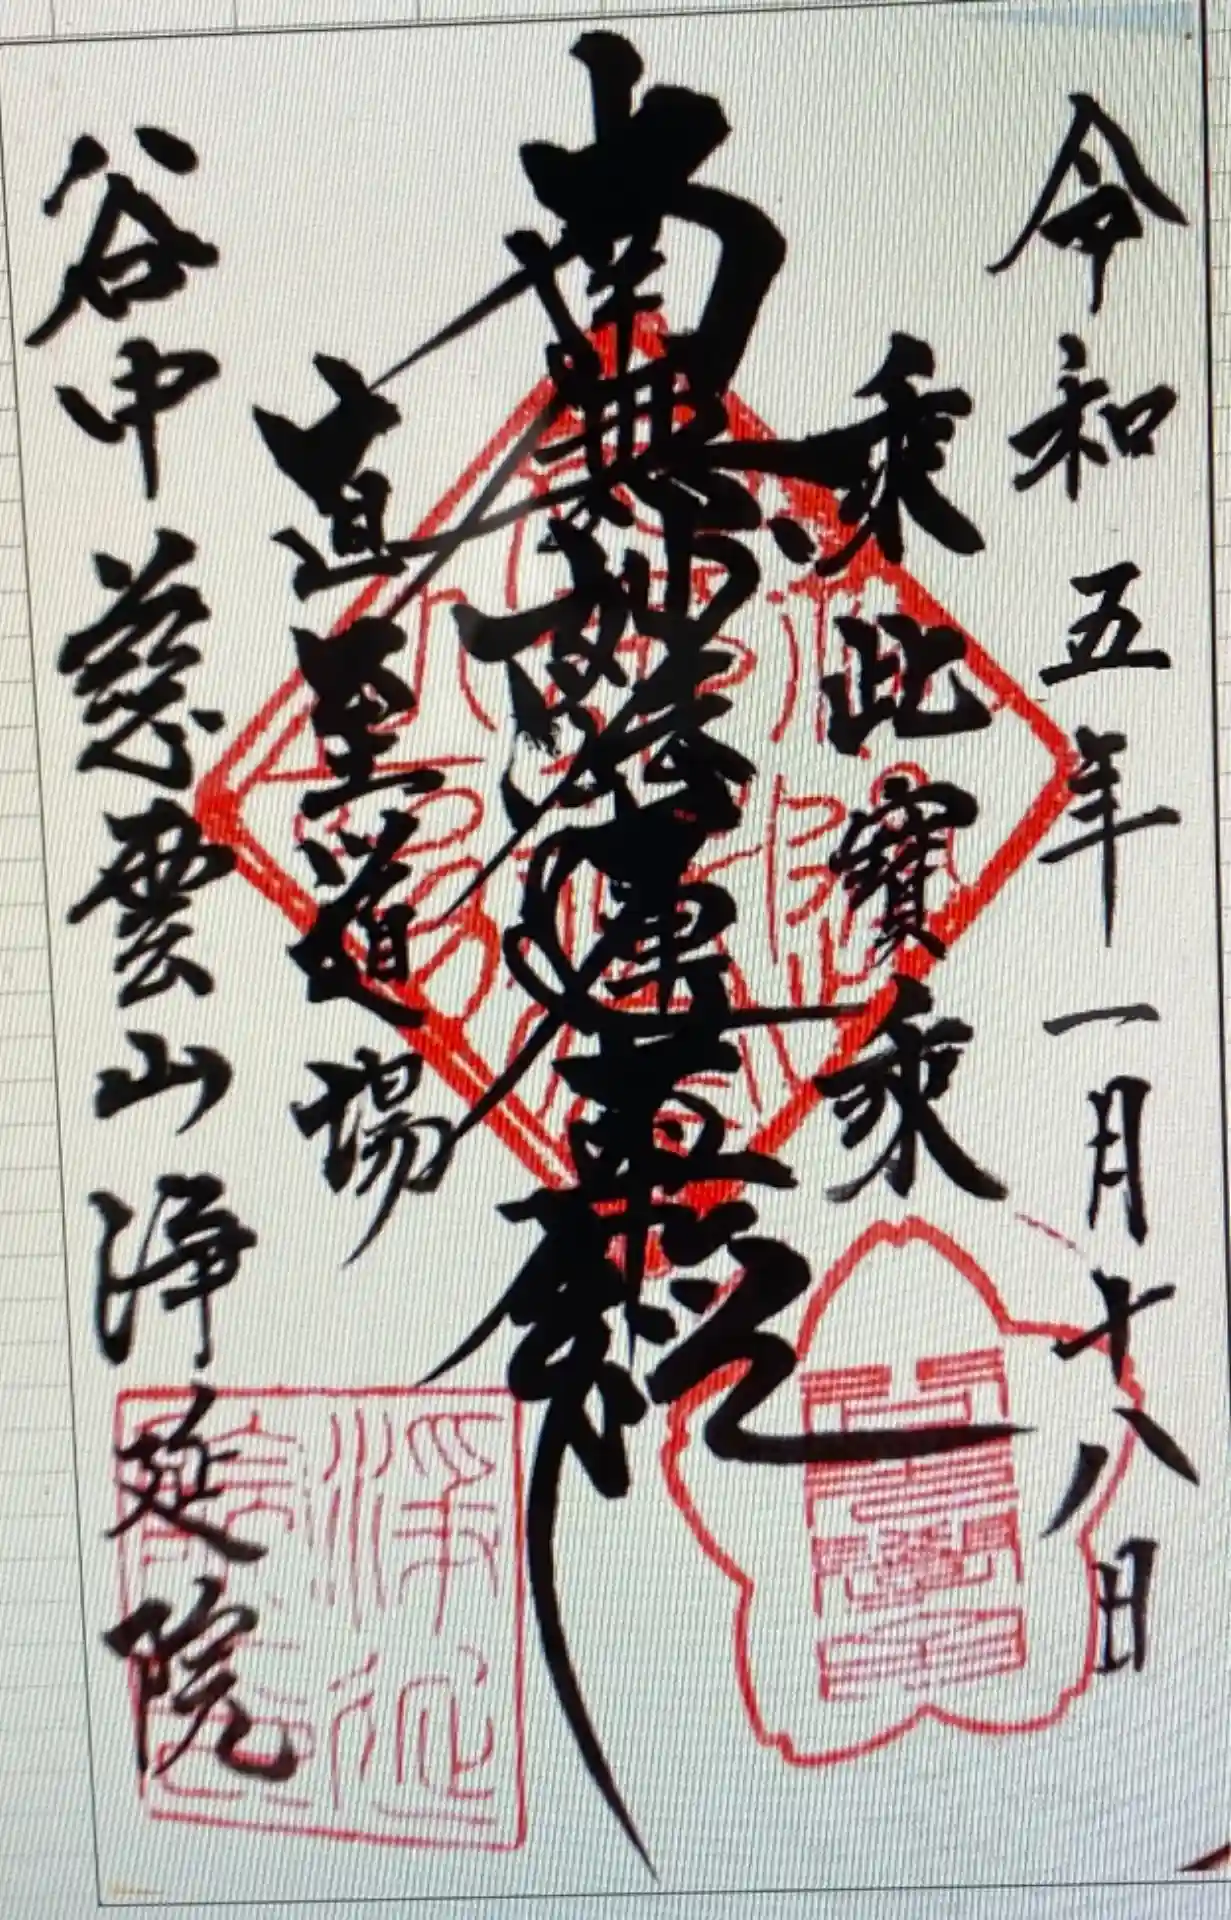 令和五年一月十八日
乘此寶乘
南無妙法蓮華経
直至道場
谷中慈雲山浄延院